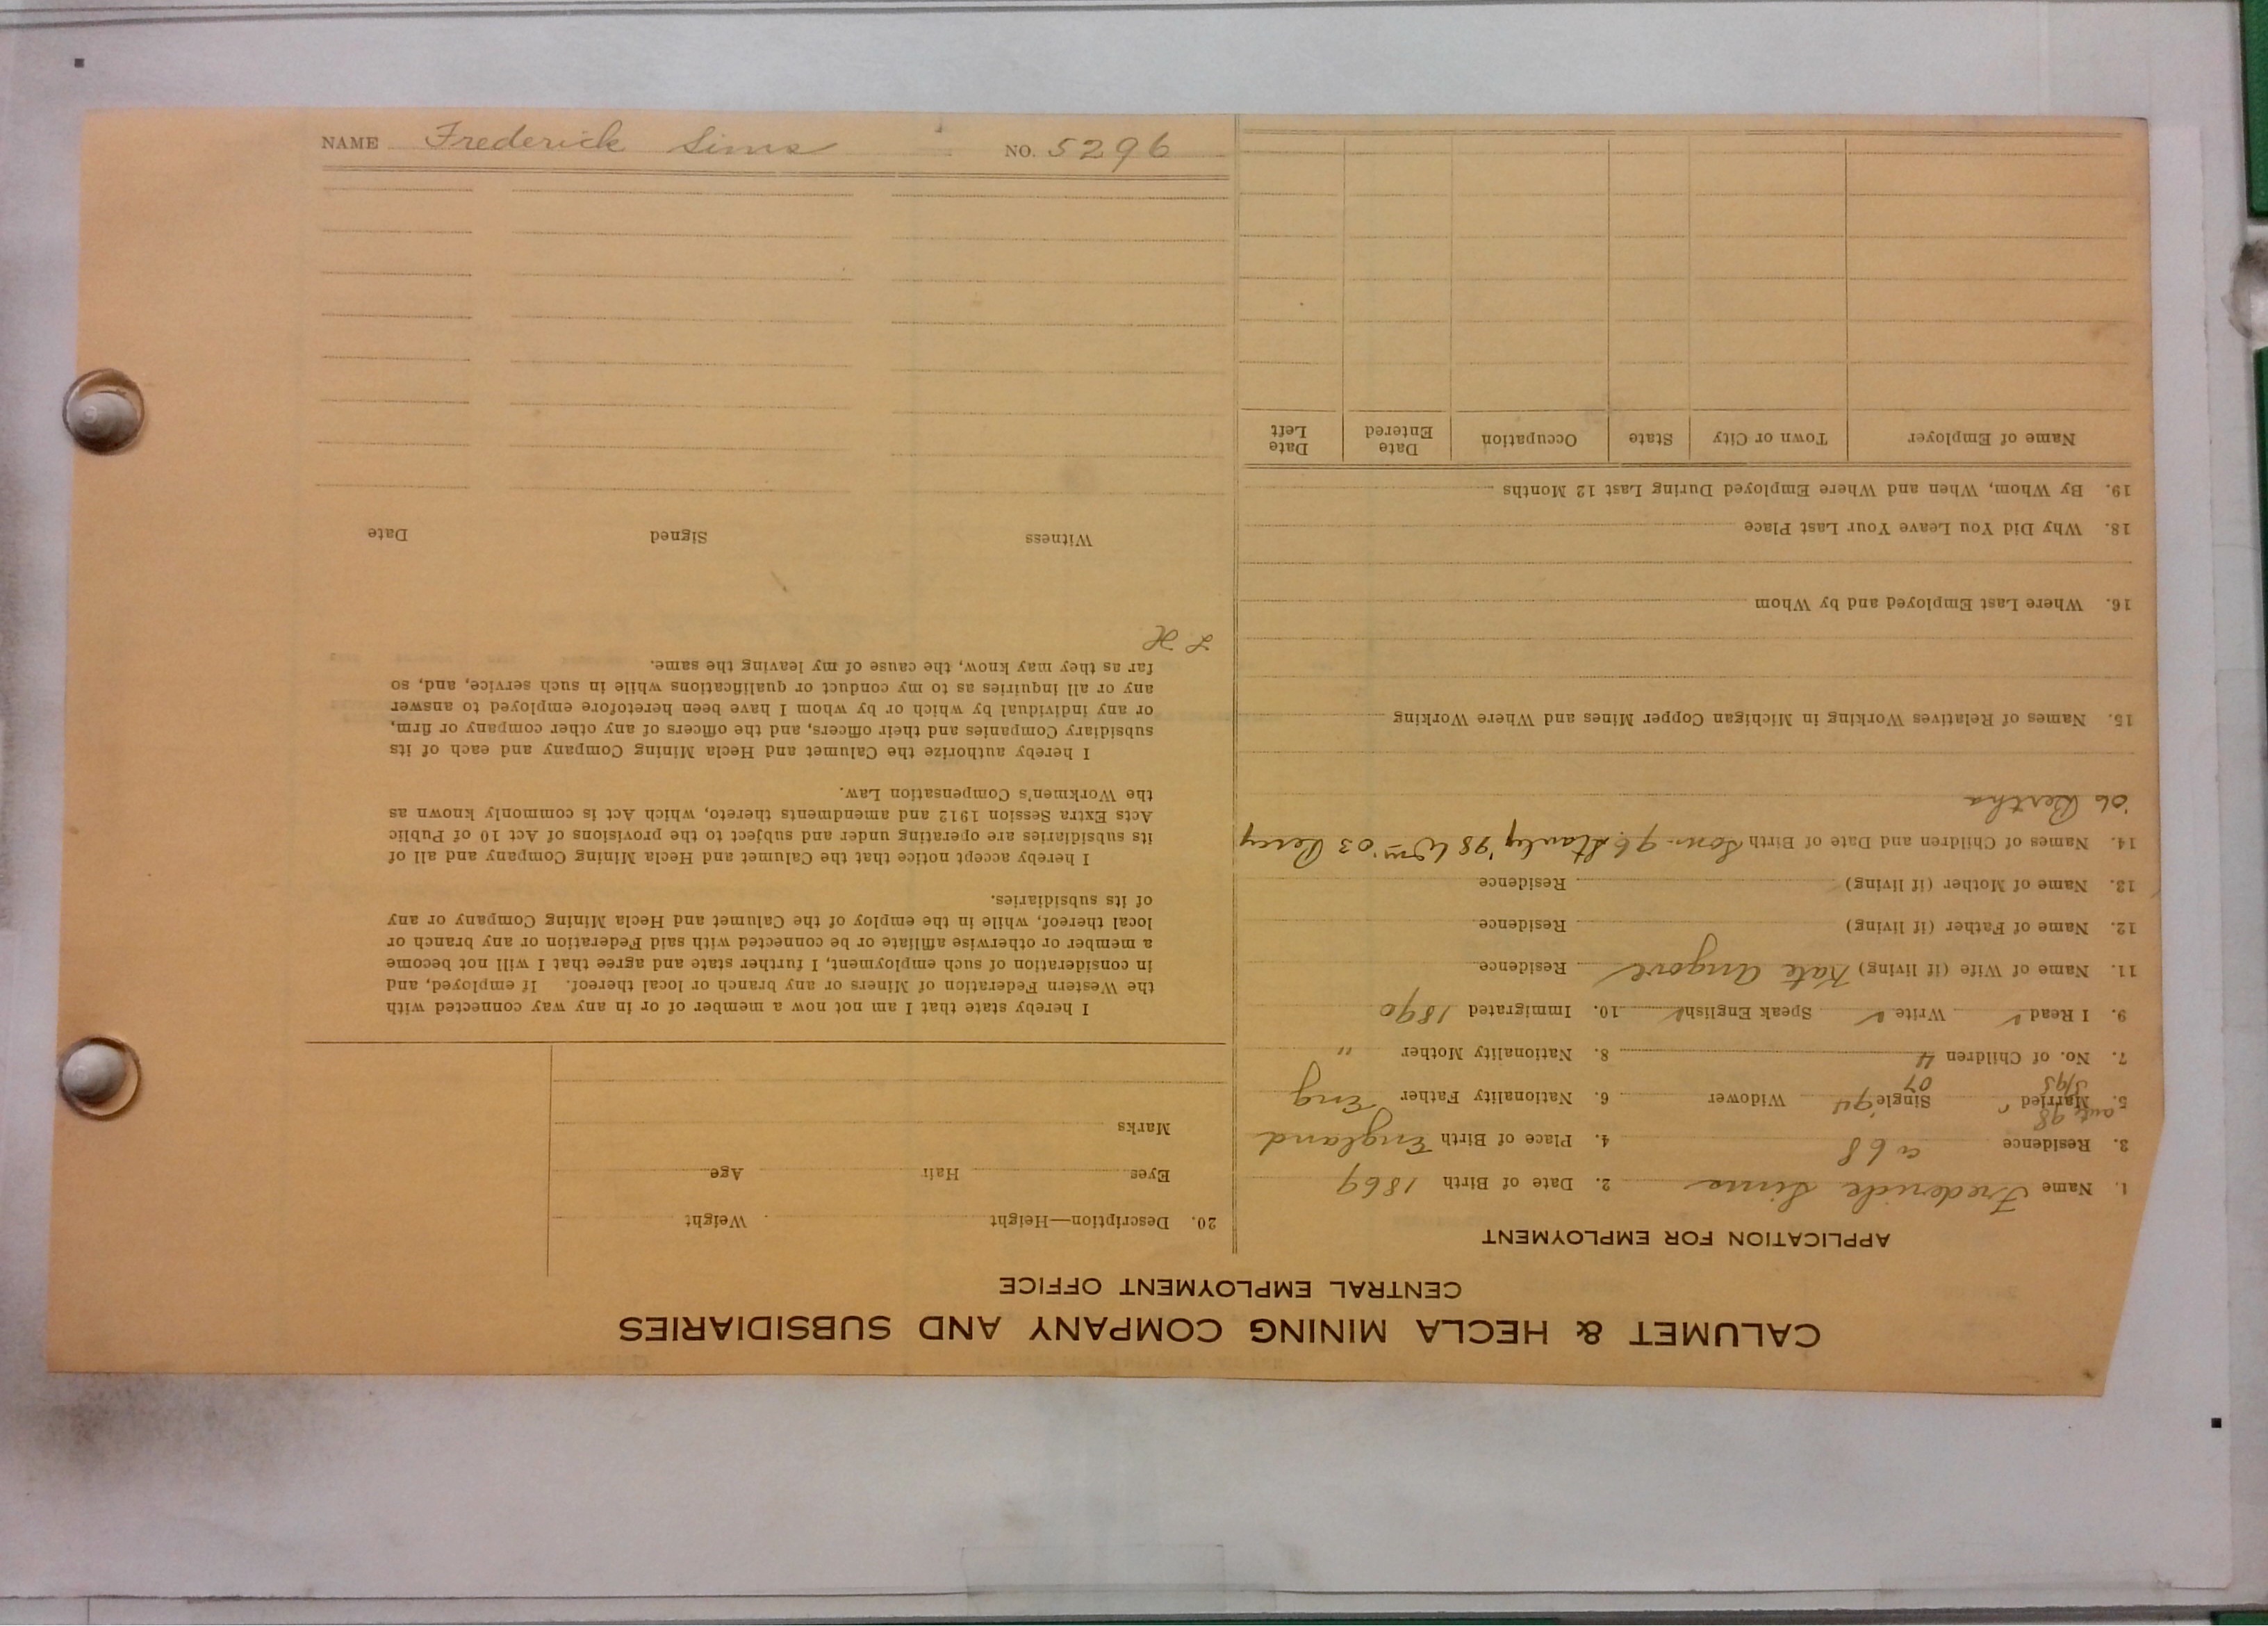 NAME Frederick Sims NO. 5296
CALUMET & HECLA MINING COMPANY AND SUBSIDIARIES
CENTRAL EMPLOYMENT OFFICE
APPLICATION FOR EMPLOYMENT
1. Name Frederick Sims 2. Date of Birth 1869
3. Residence 4. Place of Birth England
5. Married Single Widower 6. Nationality Father Eng
7. No. of Children 4 8. Nationality Mother "
9. I Read ✓ Write ✓ Speak English ✓ 10. Immigrated 1890
11. Name of Wife (if living) Kate Angove Residence
12. Name of Father (if living) Residence
13. Name of Mother (if living) Residence
14. Names of Children and Date of Birth Stanley '98 Wm '03 Percy
'06 Bertha
15. Names of Relatives Working in Michigan Copper Mines and Where Working
16. Where Last Employed and by Whom
18. Why Did You Leave Your Last Place
19. By Whom, When and Where Employed During Last 12 Months
Name of Employer Town or City State Occupation Date Entered Date Left
20. Description—Height Weight
Eyes Hair Age
Marks
I hereby state that I am not now a member of or in any way connected with
the Western Federation of Miners or any branch or local thereof. If employed, and
in consideration of such employment, I further state and agree that I will not become
a member or otherwise affiliate or be connected with said Federation or any branch or
local thereof, while in the employ of the Calumet and Hecla Mining Company or any
of its subsidiaries.
I hereby accept notice that the Calumet and Hecla Mining Company and all of
its subsidiaries are operating under and subject to the provisions of Act 10 of Public
Acts Extra Session 1912 and amendments thereto, which Act is commonly known as
the Workmen's Compensation Law.
I hereby authorize the Calumet and Hecla Mining Company and each of its
subsidiary Companies and their officers, and the officers of any other company or firm,
or any individual by which or by whom I have been heretofore employed to answer
any or all inquiries as to my conduct or qualifications while in such service, and, so
far as they may know, the cause of my leaving the same.
Witness Signed Date